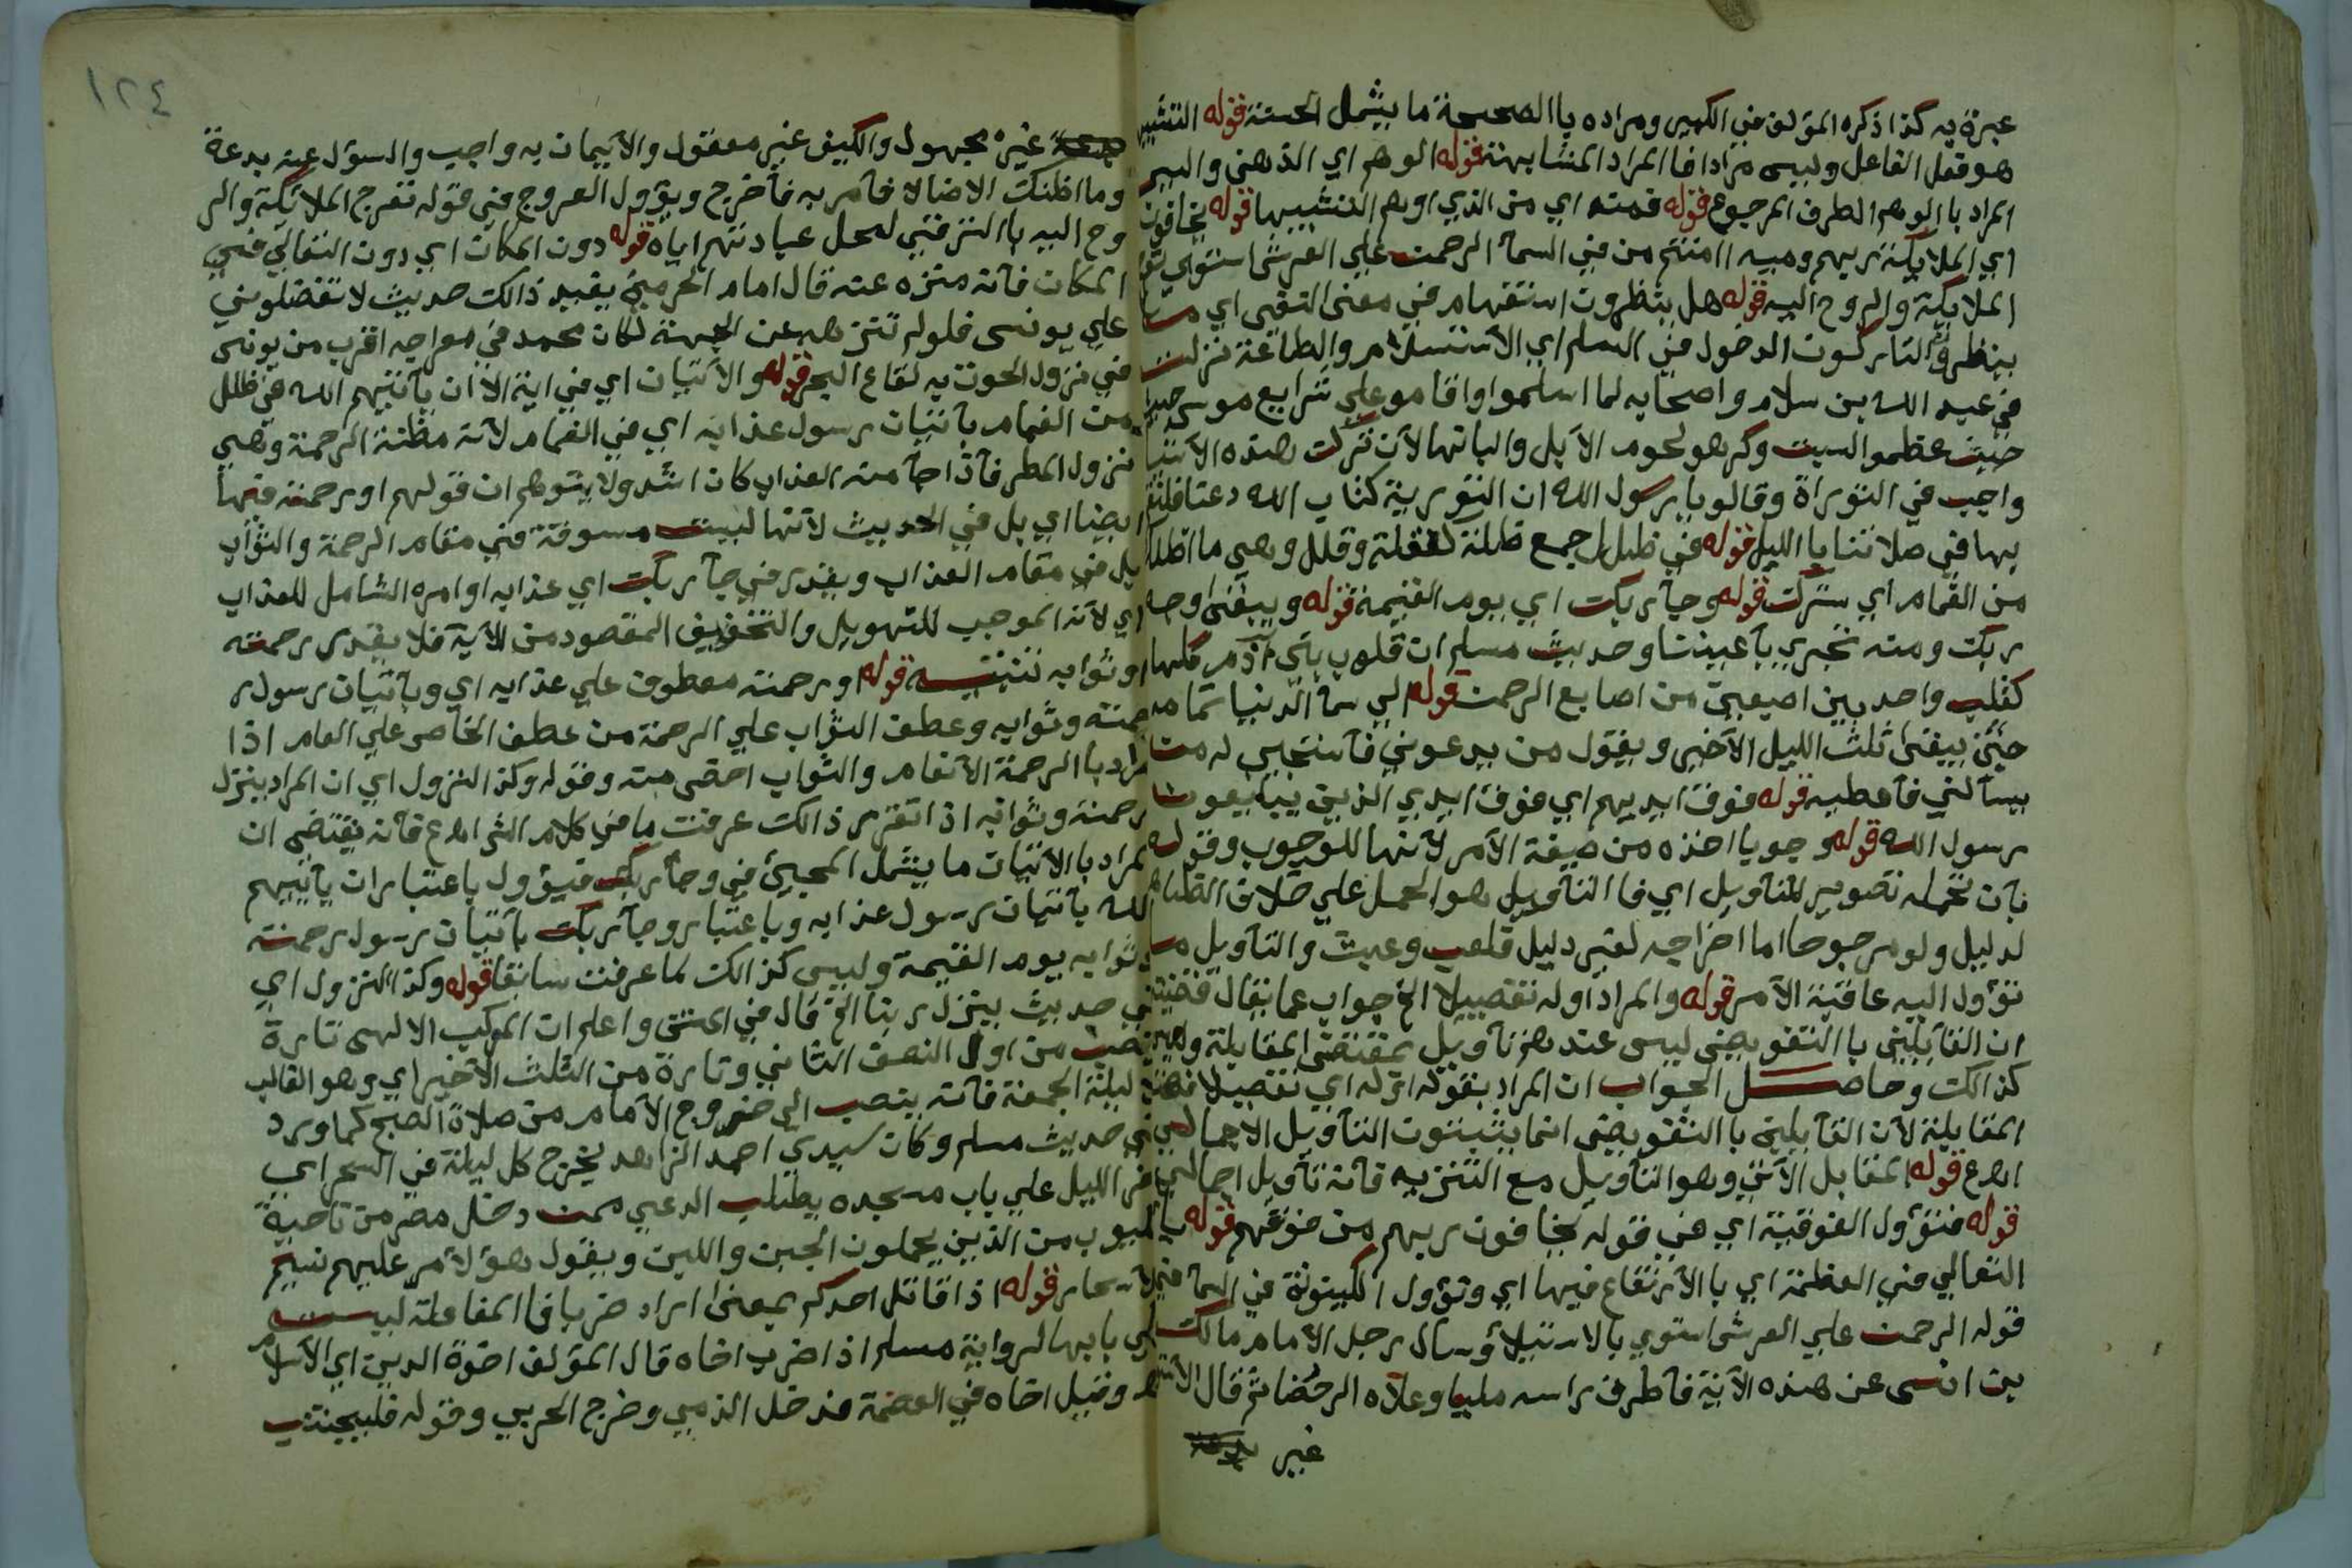 عبرة به كذا ذكره المؤلف في الكبير ومراده باالصحيحة ما يشمل الحسنة قوله التشبيه
هو فعل الفاعل وليس مرادا فاالمراد المشابهة قوله الوهم اي الذهن والـ
المراد باالوهم الطرف المرجوع قوله فمنه اي من الذي اوهم التشبيها قوله يخافون
اي الملائكة ربهم ومنه اامنتم من في السمآ الرحمن علي العرش استوي تعرج
الملايكة والروح اليه قوله هل ينظرون استفهام في معني النفي اي ما
ينظرون التاركون الدخول في السلم اي الاستسلام والطاعة نزلت
في عبد الله بن سلام واصحابه لما اسلموا واقامو علي شرايع موسي
حيث عظموا السبت وكرهو لحوم الآبل والبانها لآن ترك هذه الآشيا
واجب في التوراة وقالو يا رسول الله ان التورية كتاب الله دعنا فلنقم
بها في صلاتنا باالليل قوله في ظلل جمع ظلة كقلة وقلل وهي ما اظلك
من الغمام اي سترك قوله وجآ ربك اي يوم القيمة قوله ويبقي وجه
ربك ومنه تجري بآعيننا وحديث مسلم ان قلوب بني آدم كلها
كقلب واحد بين اصبعين من اصابع الرحمن قوله الي سمآ الدنيا تمامه
حين يبقي ثلث الليل الآخير ويقول من يدعوني فآستجيب له من
يسآلني فآعطيه قوله فوق ايديهم اي فوق ايدي الذين يبايعون
رسول الله قوله وجوبا اخذه من صيغة الآمر لآنها للوجوب وقوله
بآن تحمله تصوير للتآويل اي فاالتآويل هو الحمل علي خلاف الظاهر
لدليل ولو مرجوحا اما اخراجه لغير دليل فلعب وعبث والتآويل ما
تؤول اليه عاقبة الآمر قوله والمراد اوله تفصيلا الخ جواب عما يقال قضية
ان القآيلين باالتفويض ليس عندهم تآويل بمقتضي المقابلة وليس
كذالك وحاصل الجواب ان المراد بقوله اوله اي تفصيلا فهذه
المقابلة لآن القآيلين باالتفويض انما يثبتون التآويل الاجمالي
اهع قوله المقابل الآتي وهو التآويل مع التنزيه فآنه تآويل اجمالي
قوله فتؤول الفوقية اي في قوله يخافون ربهم من فوقهم قوله با
التعالي في العظمة اي باالآرتفاع فيها اي وتؤول الكينونة في السمآ في
قوله الرحمن علي العرش استوي بالاستيلاؤ وسال رجل الامام مالك
بن انس عن هذه الآية فآطرق راسه مليا وعلاه الرحضا ثم قال الآستوآ
غير
غيره مجهول والكيف غير معقول والآيمان به واجب والسؤل عنه بدعة
وما اظنك الاضالا فآمر به فآخرج ويؤول العروج في قوله تعرج الملائكة والر
وح اليه باالترقي لمحل عبادتهم اياه قوله دون المكان اي دون التعالي في
المكان فآنه منزه عنه قال امام الحرمين يفيد ذالك حديث لا تفضلوني
علي يونس فلولم تنزهه عن الجهة لكان محمد في معراجه اقرب من يونس
في نزول الحوت به لقاع البحر قوله والآتيان اي في اية الا ان يآتيهم الله في ظلل
من الغمام بآتيان رسول عذابه اي في الغمام لآنه مظنة الرحمة وهي
نزول المطر فآذا جآ منه العذاب كان اشد ولا يتوهم ان قولهم او رحمته فيها
ايضا اي بل في الحديث لآنها ليست مسوقة في مقام الرحمة والثؤآب
بل في مقام العذاب ويقدر في جآ ربك اي عذابه او امره الشامل للعذاب
اي لآنه الموجب للتهويل والتخويف المقصود من الآية فلا يقدر رحمته
او ثوابه تنبيه قوله او رحمته معطوف علي عذابه اي وبآتيان رسول ر
حمته وثوابه وعطف الثؤاب علي الرحمة من عطف الخآص علي العام اذا
اراد باالرحمة الآنعام والثواب اخص منه وقوله وكذا النزول اي ان المراد ينزل
رحمته وثوابه اذا تقرر ذالك عرفت ما في كلام الشرا اهع فآنه يقتضي ان
المراد باالآتيان ما يشمل المجيئ في وجآ ربك فيؤول باعتباران يآتيهم
الله بآتيان رسول عذابه وباعتبار وجآ ربك بآتيان رسول رحمته
وثوابه يوم القيمة وليس كذالك كما عرفت سابقا قوله وكذا النزول اي
في حديث ينزل ربنا الخ قال في المنن واعلم ان الموكب الالهي تارة
ينصب من اول النصف الثاني وتارة من الثلث الآخير اي وهو الغالب
الا ليلة الجمعة فآنه ينصب الي خروج الآمام من صلاة الصبح كما ورد
في حديث مسلم وكان سيدي احمد الزاهد يخرج كل ليلة في السحر اي
اخر الليل علي باب مسجده يطلب الدعي ممن دخل مصر من ناحية
الجيوب من الذين يحملون الجبن واللبن ويقول هؤلآ مر عليهم نسيم
الآسحار قوله اذا قاتل احدكم بمعني اراد ضربا فاالمفاعلة ليست
علي بابها لرواية مسلم اذا ضرب اخاه قال المؤلف اخوة الدين اي الآسلام
اهـ وقيل اخاه في العصمة فدخل الذمي وخرج الحربي وقوله فليجتنب
١٢٤